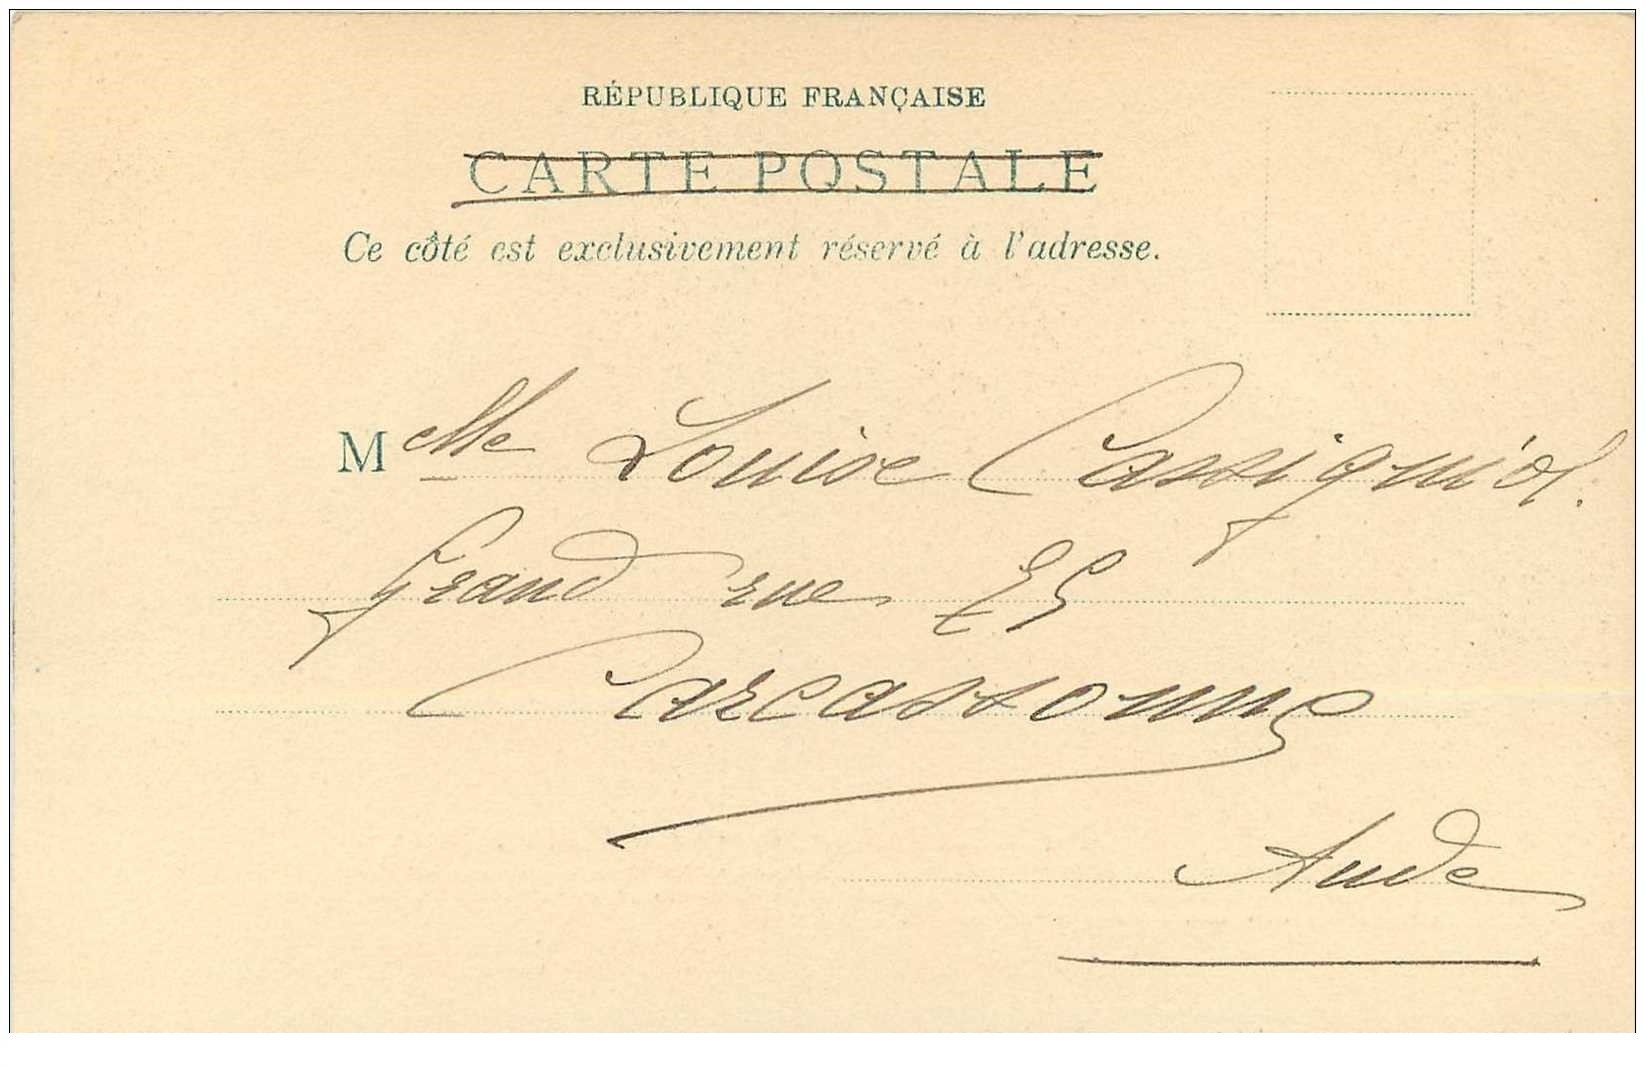 RÉPUBLIQUE FRANÇAISE
CARTE POSTALE
Ce côté est exclusivement réservé à l'adresse.
Melle Louise Cassignol.
Grand rue
Carcassonne
Aude